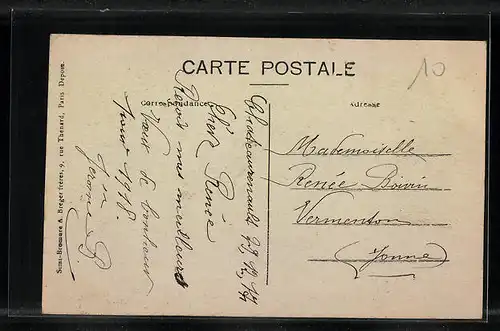 10
CARTE POSTALE
Correspondance
Adresse
29, 12, 17
Chère Renée
Reçois mes meilleurs
Vœux de bonheur
pour 1918.
Mademoiselle
Renée Boivin
Vermenton
(Yonne)
Semi-Bromure A. Breger frères, 9, rue Thénard, Paris Déposé.